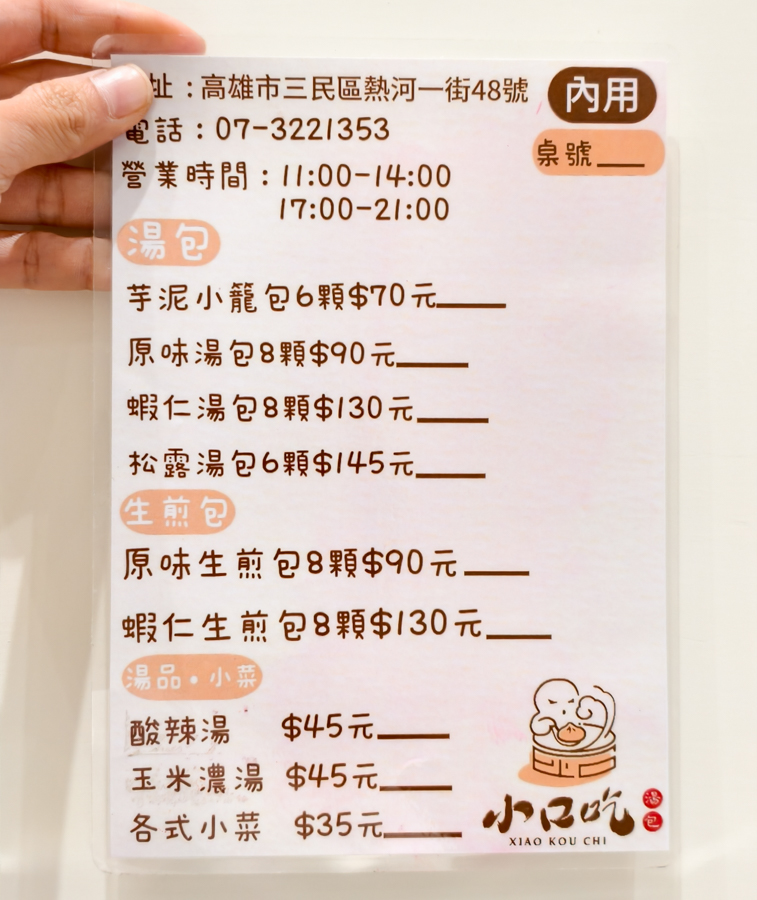 址：高雄市三民區熱河一街48號
內用
電話：07-3221353
桌號
營業時間：11:00-14:00
17:00-21:00
湯包
芋泥小籠包6顆$70元
原味湯包8顆$90元
蝦仁湯包8顆$130元
松露湯包6顆$145元
生煎包
原味生煎包8顆$90元
蝦仁生煎包8顆$130元
湯品•小菜
酸辣湯 $45元
玉米濃湯 $45元
各式小菜 $35元
小口吃
湯包
XIAO KOU CHI